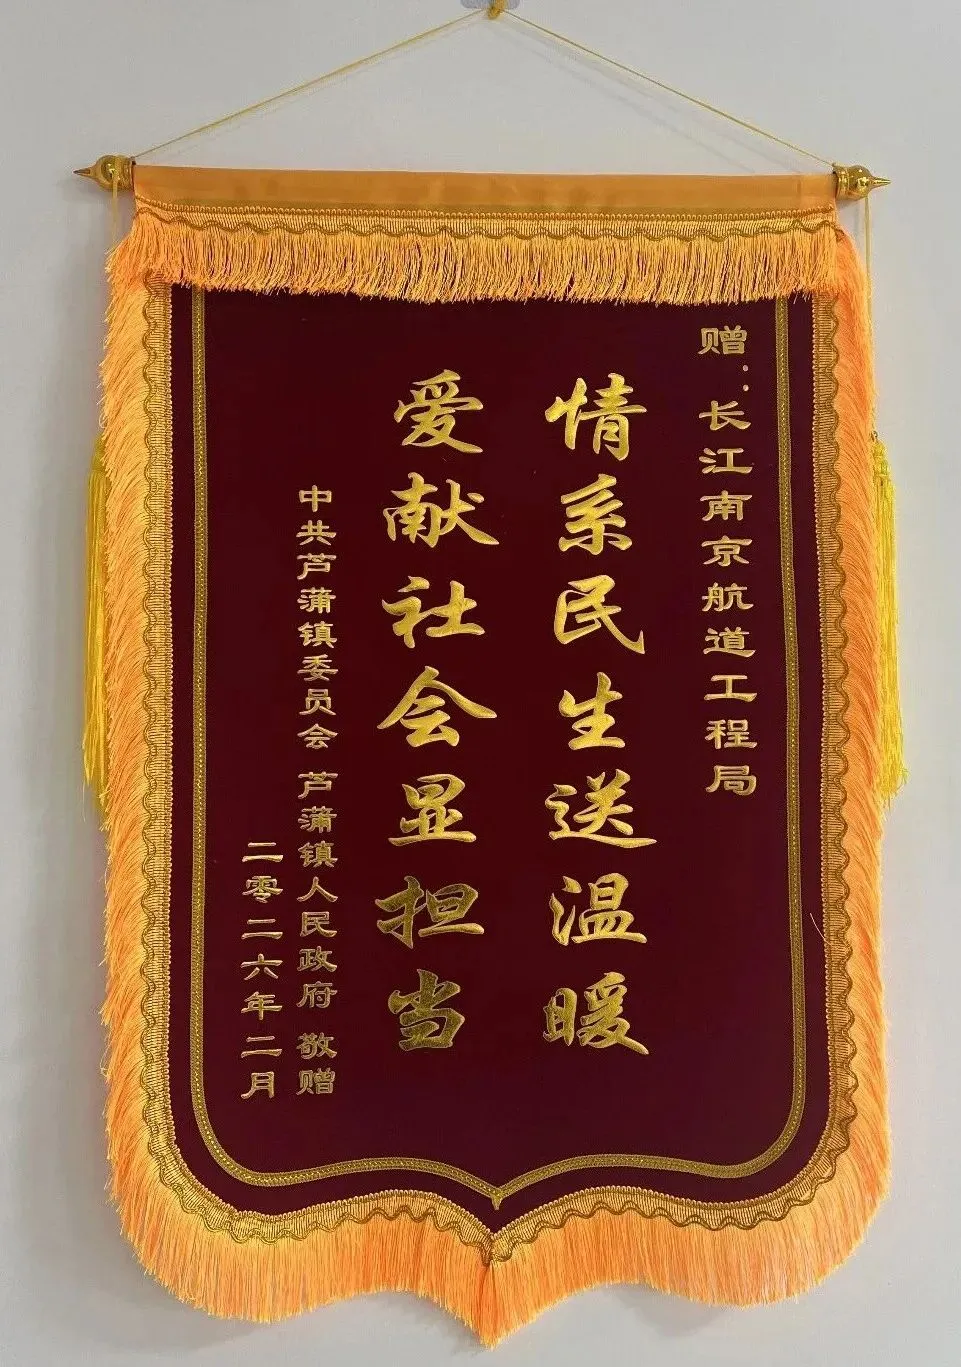 赠：长江南京航道工程局
情系民生送温暖
爱献社会显担当
中共芦蒲镇委员会 芦蒲镇人民政府 敬赠
二零二六年二月